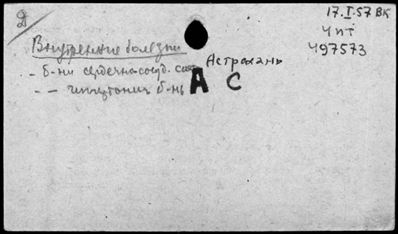 Д
17.I.57 ВК
ЧИТ
497573
Внутренние болезни
- б-ни сердечно-сосуд. сист.
Астрахань
- - гипертонич б-нь
А С